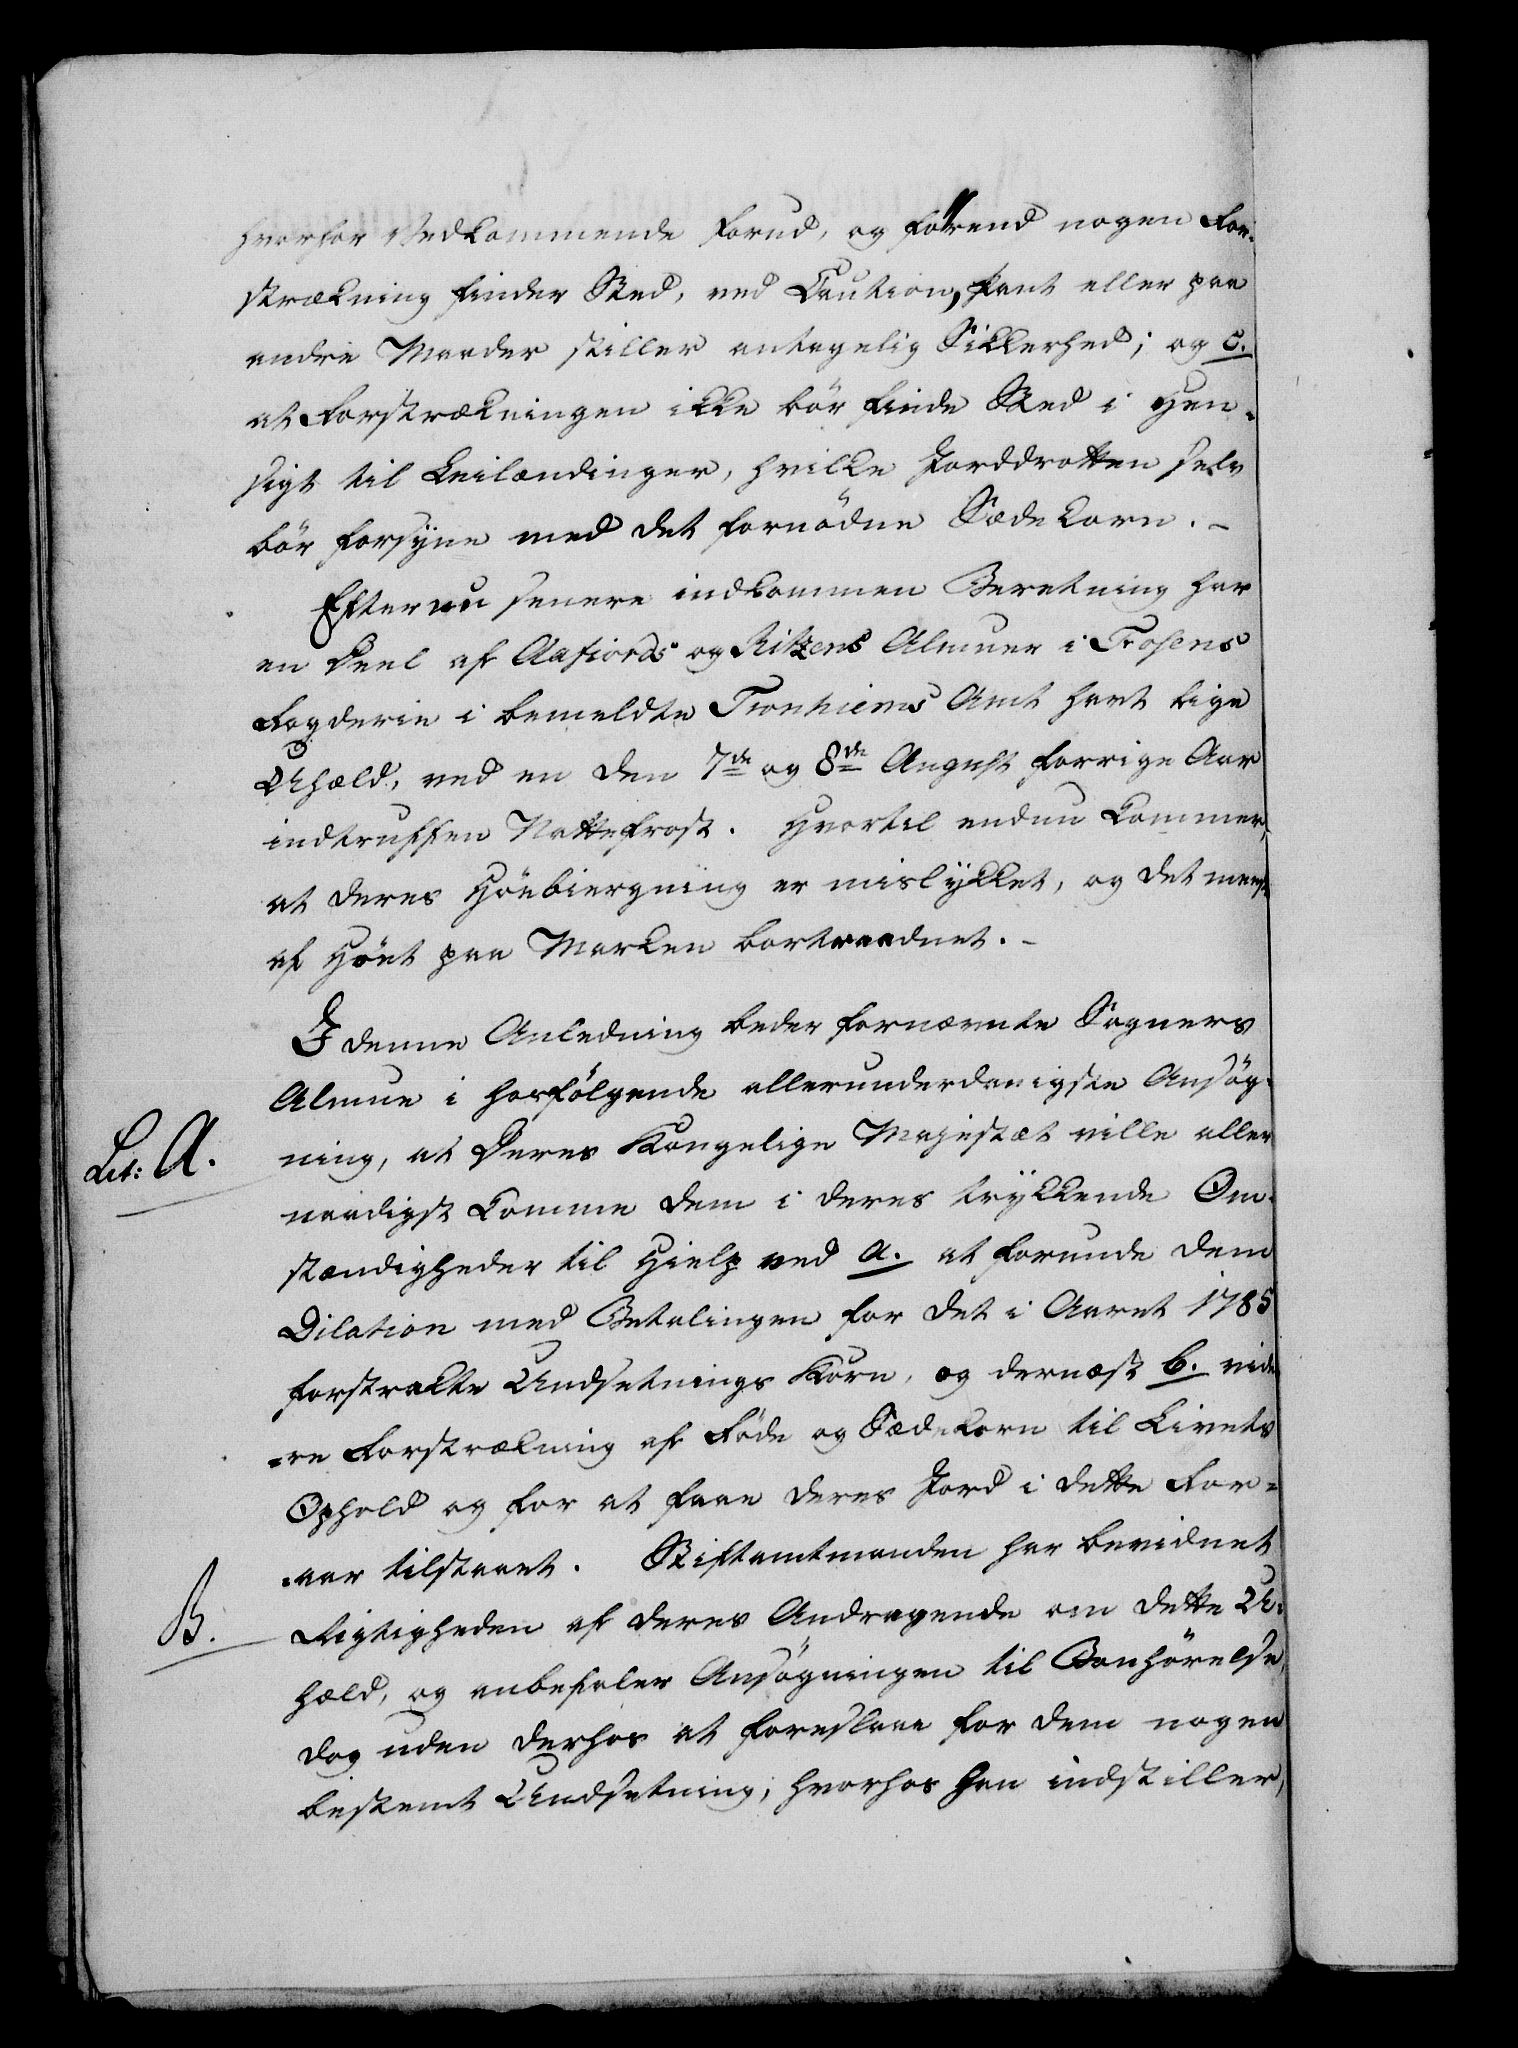 hvorfor Vedkommende forud, og förrend nogen For-
strækning finder Sted, ved Caution, Pant eller paa
andre Maader stiller antagelig Sikkerhed; og c.
at Forstrækningen ikke bör finde Sted i Hen-
sigt til Leilændinger, hvilke Jorddrotten selv
bör forsyne med det fornödne Sædekorn. -
Efter nu senere indkommen Beretning har
en Deel af Aafiords og Ritzens Almuer i Fosens
Fogderie i bemeldte Tronhiems Amt havt lige
Uheld, ved en den 7de og 8de August forrige Aar
indtruffen Nattefrost. Hvortil endnu kommer,
at deres Höebiergning er mislykket, og det meest
af Höet paa Marken bortraadnet. -
I denne Anledning beder fornævnte Sogners
Almue i hosfölgende allerunderdanigste Ansög-
Lit: A.
ning, at Deres Kongelige Majestæt ville aller
naadigst komme dem i deres trykkende Om-
stændigheder til Hielp ved a. at forunde dem
Dilation med Betalingen for det i Aaret 1785
forstrakte Undsetnings Korn, og dernæst b. vide
=re Forstrækning af Föde og Sædekorn til Livets
Ophold og for at faae deres Jord i dette For=
=aar tilsaaet. Stiftamtmanden har bevidnet
B.
Rigtigheden af deres Andragende om dette U-
held, og anbefaler Ansögningen til Bönhörelse,
dog uden derhos at foreslaae for dem nogen
bestemt Undsetning; hvorhos han indstiller,